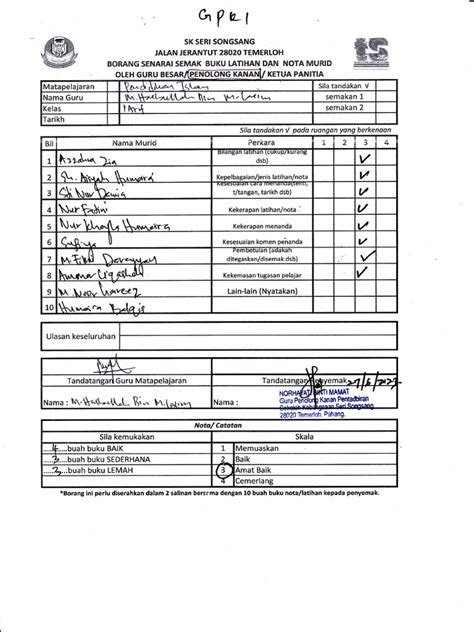 GPK1
SK SERI SONGSANG
JALAN JERANTUT 28020 TEMERLOH
BORANG SENARAI SEMAK BUKU LATIHAN DAN NOTA MURID
OLEH GURU BESAR/ PENOLONG KANAN / KETUA PANITIA
Matapelajaran Pendidikan Islam Sila tandakan √
Nama Guru M. Hasbullah Bin M. semakan 1
Kelas semakan 2
Tarikh
Sila tandakan √ pada ruangan yang berkenaan
Bil Nama Murid Perkara 1 2 3 4
1 Zia Bilangan latihan (cukup/kurang dsb) ✓
2 Aisyah Humaira Kepelbagaian/jenis latihan/nota ✓
3 Siti Nur Kesesuaian cara menanda(teliti, t/tangan, tarikh dsb) ✓
4 Nur Kekerapan latihan/nota ✓
5 Nur Humaira Kekerapan penanda ✓
6 Sufiya Kesesuaian komen penanda ✓
7 M. Pembetulan (adakah ditegaskan/disemak dsb) ✓
8 Ammar Kekemasan tugasan pelajar ✓
9 M. Noor Lain-lain (Nyatakan)
10 Humaira Balqis
Ulasan keseluruhan
Tandatangan Guru Matapelajaran Tandatangan Penyemak 27/6/2023
Nama : M. Hasbullah Bin M. Nama :
NORHAYATI BINTI MAMAT
Guru Penolong Kanan Pentadbiran
Sekolah Kebangsaan Seri Songsang
28020 Temerloh, Pahang.
Nota/ Catatan
Sila kemukakan Skala
4 buah buku BAIK 1 Memuaskan
3 buah buku SEDERHANA 2 Baik
3 buah buku LEMAH 3 Amat Baik
4 Cemerlang
*Borang ini perlu diserahkan dalam 2 salinan bersama dengan 10 buah buku nota/latihan kepada penyemak.